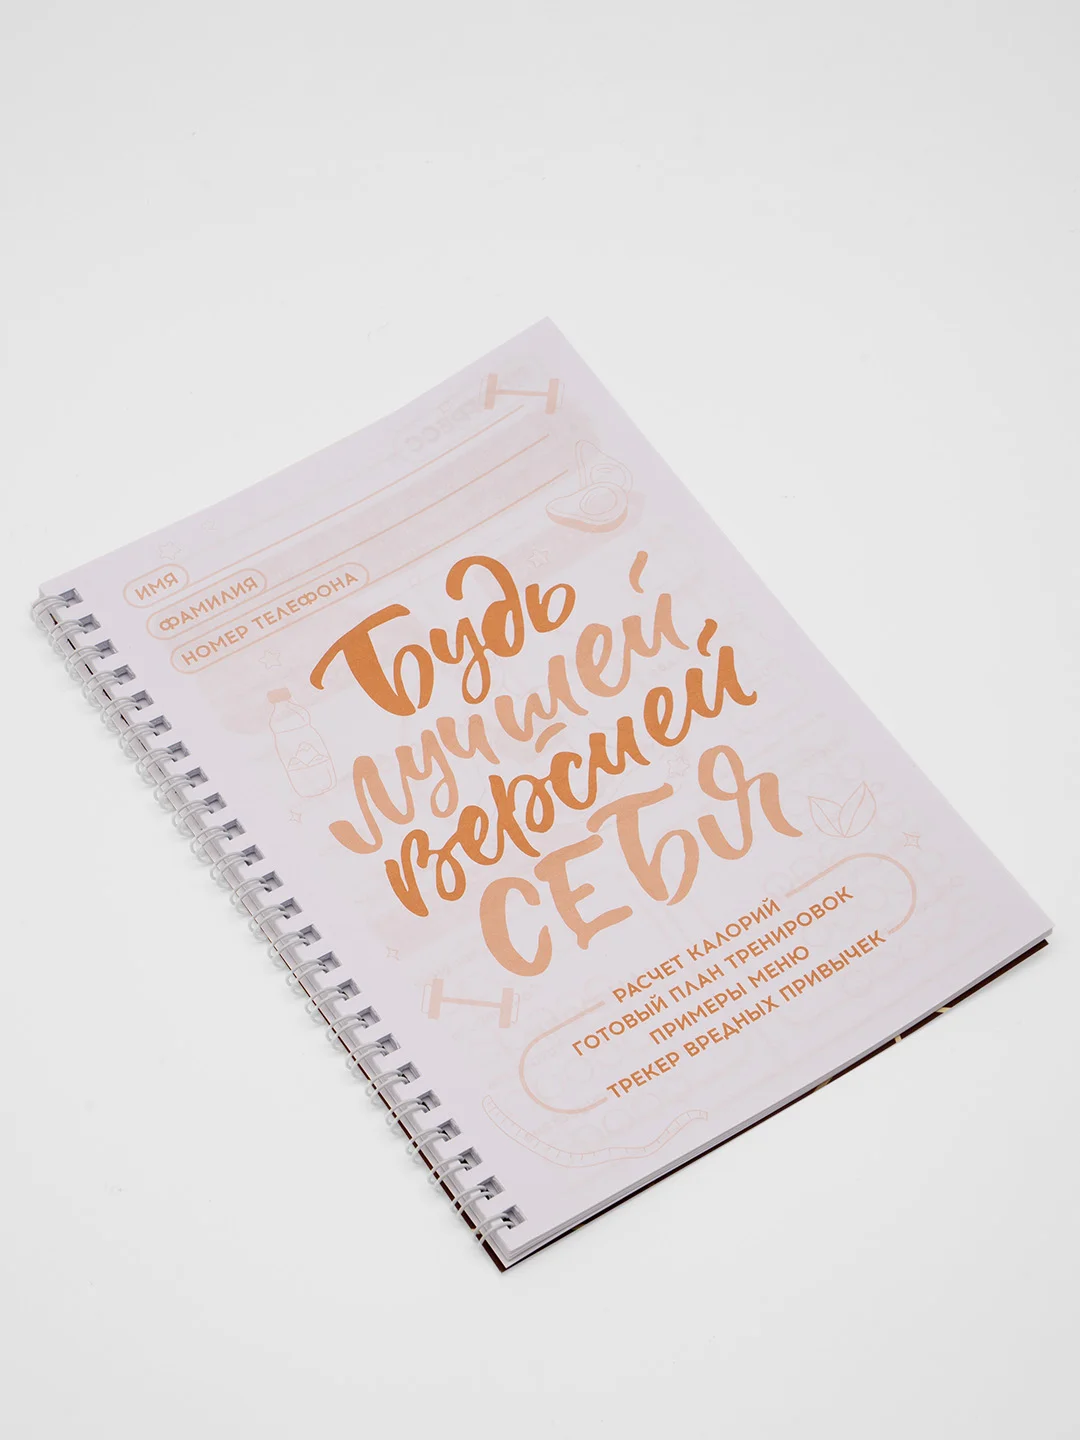 ИМЯ
ФАМИЛИЯ
НОМЕР ТЕЛЕФОНА
Будь
лучшей
версией
СЕБЯ
РАСЧЕТ КАЛОРИЙ
ГОТОВЫЙ ПЛАН ТРЕНИРОВОК
ПРИМЕРЫ МЕНЮ
ТРЕКЕР ВРЕДНЫХ ПРИВЫЧЕК